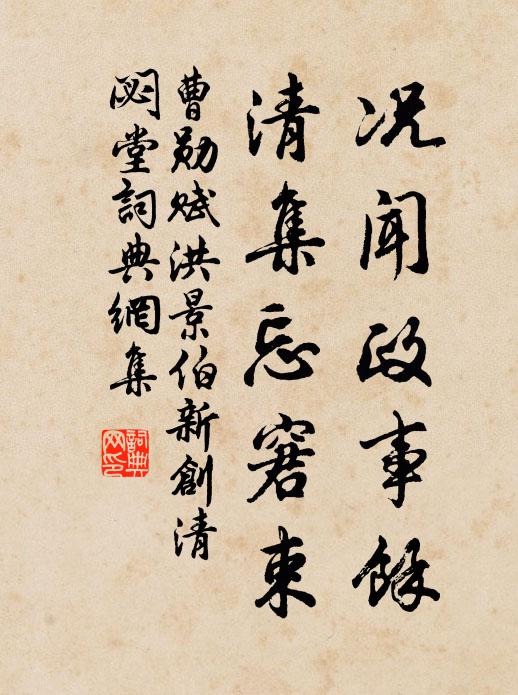 况闻政事馀
清集忘窘束
曹勋赋洪景伯新創清
閟堂詞典網集
詞典网印